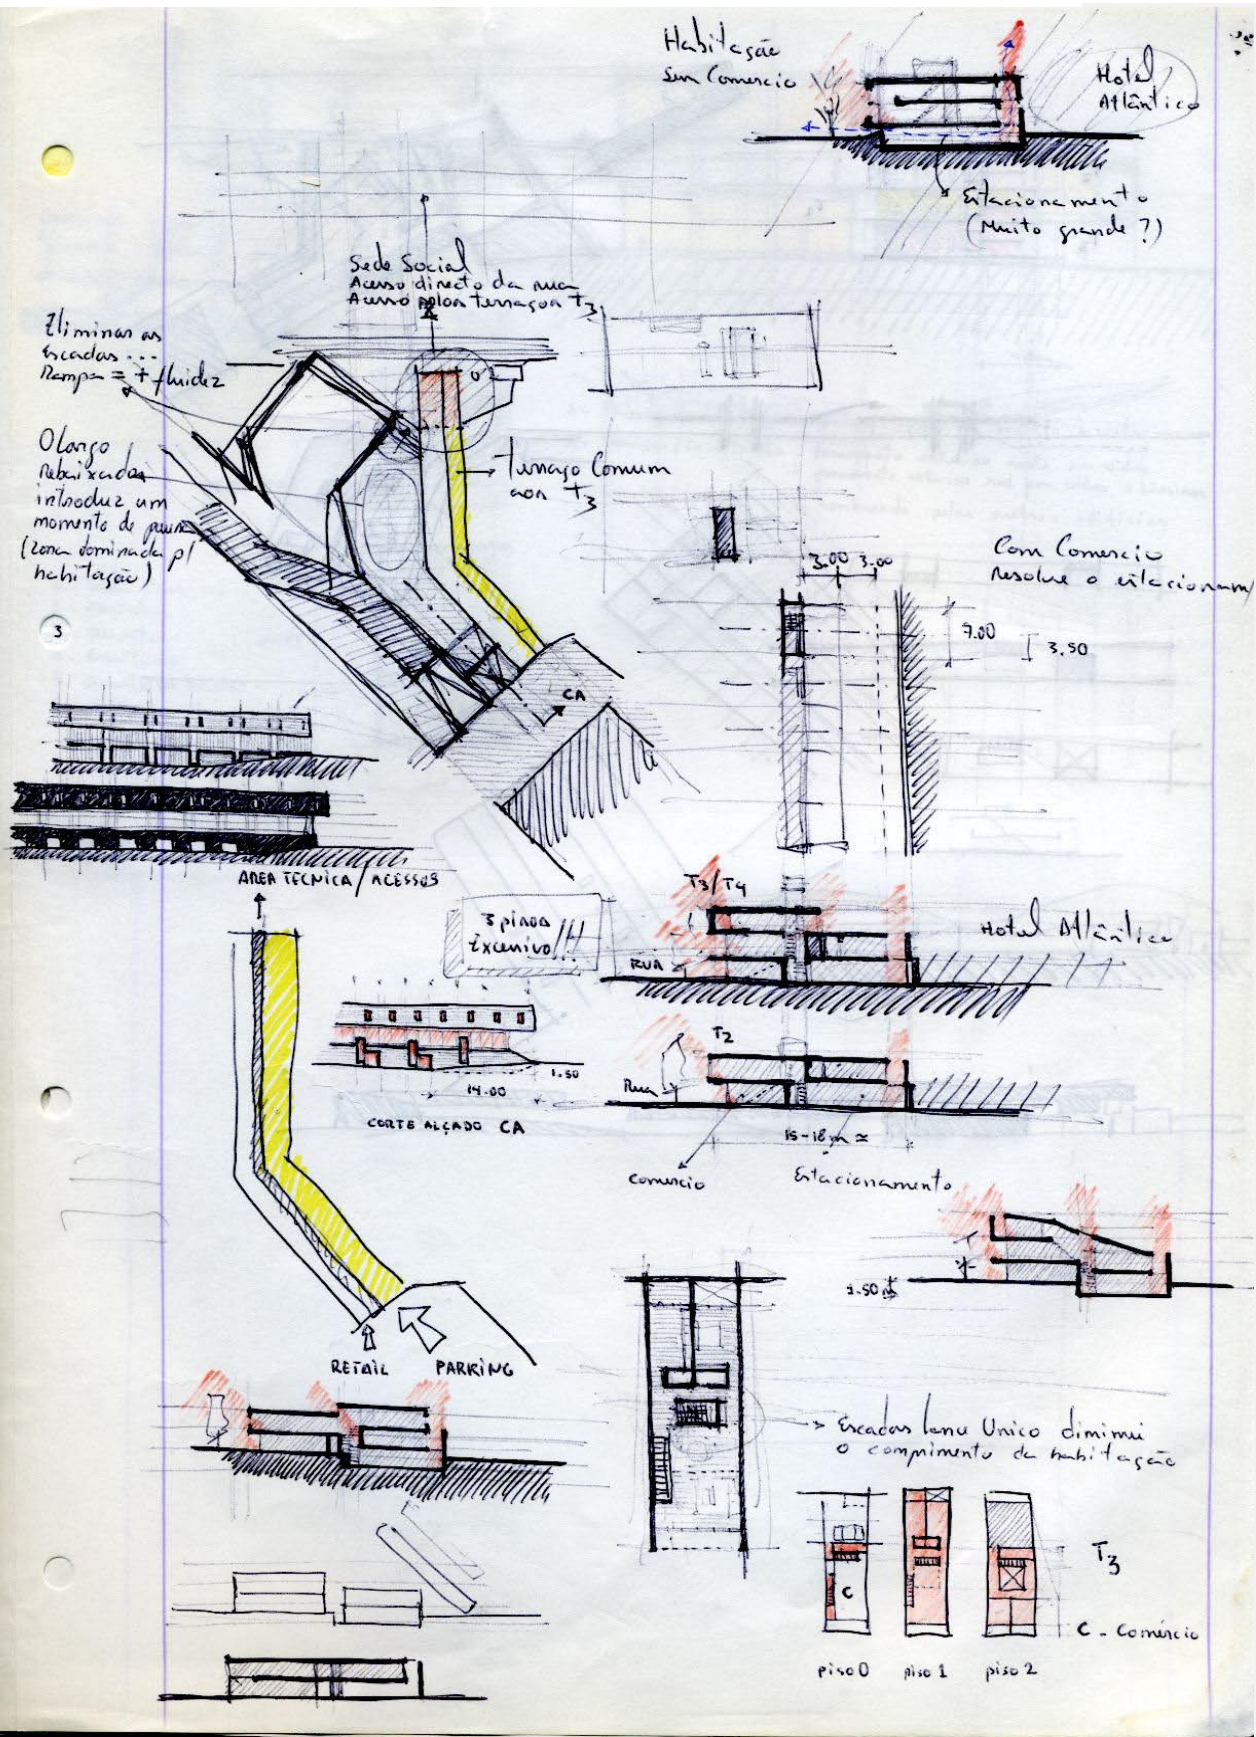 Habitação
Sem Comercio
Hotel
Atlântico
Estacionamento
(Muito grande?)
Sede Social
Acesso directo da rua
Acesso pelos terraços T3
Eliminar as
Escadas ...
Rampa = + fluidez
O largo
Rebaixado
introduz um
momento de pausa
(zona dominada p/
habitação)
terraço Comum
aos T3
Com Comercio
Resolve o estacionam/
3.00 3.00
7.00
3.50
3
CA
AREA TECNICA/ACESSOS
3 pisos
Excessivo!!!
T3/T4
RUA
Hotel Atlântico
1.50
14.00
CORTE ALÇADO CA
T2
Rua
15-18m ≃
comercio
Estacionamento
1.50m
RETAIL
PARKING
Escadas lance Unico diminui
o comprimento da habitação
C
T3
C - Comércio
piso 0
piso 1
piso 2